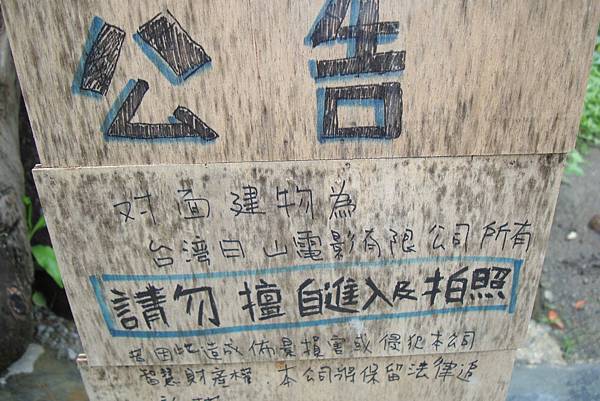 公告
対面建物為
台湾白山電影有限公司所有
請勿擅自進入及拍照
若因此造成佈景損害或侵犯本公司
智慧財產權,本公司將保留法律追